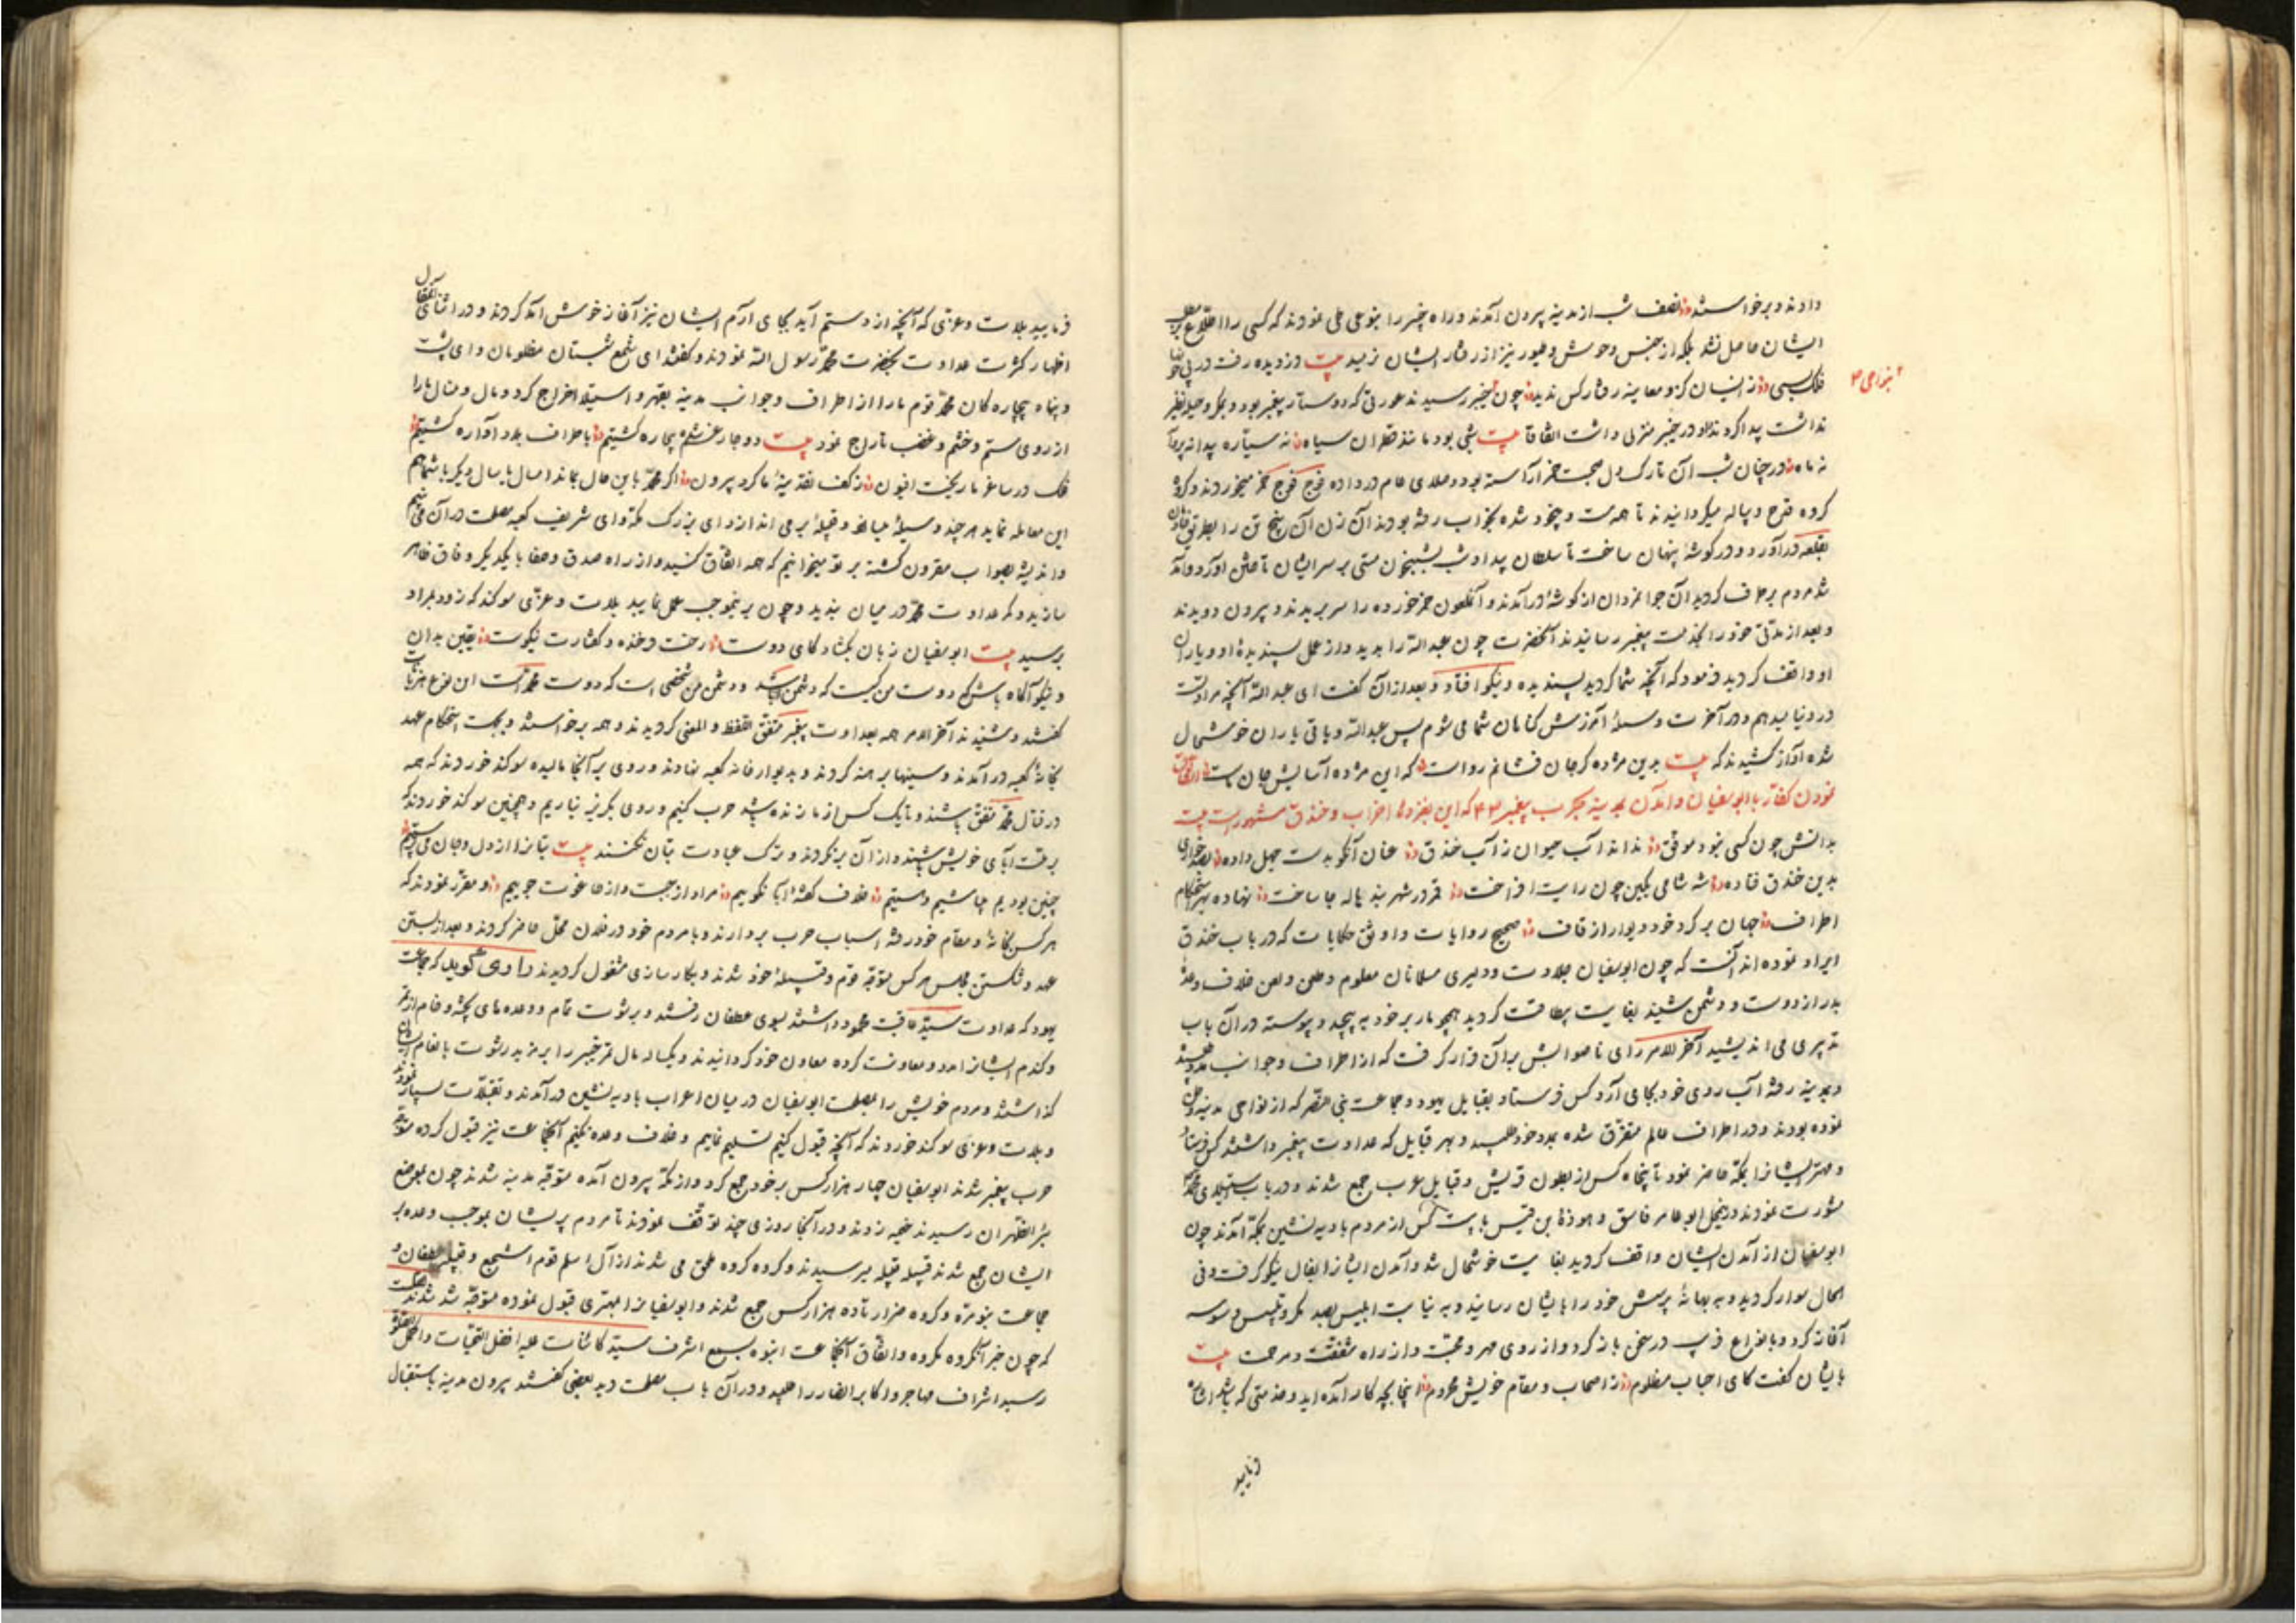 دادند و برخواستند نصف شب از مدینه بیرون آمدند و راه خیبر را بنوعی طی نمودند که کسی را اطلاع بر
ایشان حاصل نشد بلکه از جنس وحوش و طیور نیز از رفتار ایشان نرمید بیت دزدیده رفت در پی
فلک بسی ز انسان کزو معاینه رفتار کس ندید چون بخیبر رسیدند عورتی که دوستار پیغمبر بود و بمکر و حیله نظیر
نداشت پیدا کردند و در خیبر منزلی داشت اتفاقا بیت شبی بود مانند قطران سیاه نه سیاره پیدا نه
نه ماه در چنان شب آن تارک دل صحبت خمر آراسته بود و صلای عام در داده فوج فوج خمر میخوردند و گروه
گروه قدح و پیاله میگردانیدند تا همه مست و بیخود شده بخواب رفته بودند آن زن آن پنج تن را بطریق
بقلعه در آورد و در گوشهٔ پنهان ساخت تا سلطان بیداد شب بشبیخون مستی بر سر ایشان تاختن آورد و
مردم برطرف گردید آن جوانمردان از گوشه در آمدند و آن ملعون خمر خورده را سر بریدند و بیرون دویدند
و بعد از مدتی خود را بخدمت پیغمبر رسانیدند آنحضرت چون عبدالله را بدید و از عمل پسندیدهٔ او و یاران
او واقف گردید فرمود که آنچه شما کردید پسندیده و نیکو افتاد و بعد از آن گفت ای عبدالله آنچه مرادتست
در دنیا بدهم و در آخرت وسیلهٔ آمرزش گناهان شما می شوم پس عبدالله و باقی یاران خوشحال
شده آواز کشیدند که بیت بدین مژده گر جان فشانم رواست که این مژده آسایش جان ماست
نمودن کفار با ابوسفیان و آمدن بمدینه بحرب پیغمبر که این بغزوهٔ احزاب و خندق مشهور است بیت
بدانش چون کسی نبود موفق نداند آب حیوان ز آب خندق عنان آنکو بدست جهل داده
بدین خندق فتاده شه شامی بکین چون رایت افراخت قمر در شهر بند هاله جا ساخت نهاده بهر استحکام
اطراف جهان بر گرد خود دیوار از قاف صحیح روایات و اوثق حکایات که در باب خندق
ایراد نموده اند آنست که چون ابوسفیان جلادت و دلیری مسلمانان معلوم و طعن و لعن خلاف وعدهٔ
بدر از دوست و دشمن شنید بغایت بیطاقت گردید همچو مار بر خود به پیچید و پیوسته در آن باب
تدبیری می اندیشید آخرالامر رای ناصوابش بر آن قرار گرفت که از اطراف و جوانب مدد
و بمدینه رفته آب روی خود بجای آرد کس فرستاد بقبایل یهود و جماعت بنی نضیر که از نواحی مدینه
نموده بودند و در اطراف عالم متفرق شده بمدد خود طلبید و بهر قبایل که عداوت پیغمبر داشتند کس فرستاد
و مهتر ایشانرا بمکه حاضر نمود تا پنجاه کس از بطون قریش و قبایل عرب جمع شدند و در باب
مشورت نمودند و ابوعامر فاسق و هوذة بن قیس با بیست کس از مردم بادیه نشین بمکه آمدند چون
ابوسفیان از آمدن ایشان واقف گردید بغایت خوشحال شد و آمدن ایشانرا بفال نیکو گرفت و فی
الحال سوار گردید و به بهانهٔ پرسش خود را بایشان رسانید و به نیابت ابلیس بصد مکر و تلبیس وسوسه
آغاز کرد و بانواع فریب در سخن باز کرد و از روی مهر و محبت و از راه شفقت و مرحمت بیت
بایشان گفت کای احباب مظلوم ز اصحاب و مقام خویش محروم اینجا بچه کار آمده اید و خدمتی که باشد
فرمایید
فرمایید بلات و عزی که آنچه از دستم آید بجای آرم ایشان نیز آغاز خوش آمد کردند و در اثنای آنمقال
اظهار کثرت عداوت بحضرت محمد رسول الله نمودند و گفتند ای شمع شبستان مظلومان و ای پشت
و پناه بیچاره کان محمد قوم ما را از اطراف و جوانب مدینه بقهر و استیلا اخراج کرد و مال و منال ما را
از روی ستم و خشم و غضب تاراج نمود بیت دوچار غم شده بیچاره گشتیم باطراف بلاد آواره گشتیم
فلک در ساغر ما ریخت افیون ز کف نقدینهٔ ما کرد بیرون اگر محمد باین حال بماند امسال یا سال دیگر با شما هم
این معامله نماید هر چند وسیلهٔ میانهٔ
و اندیشه بصواب مقرون گشته بر تو میخوانیم که همه اتفاق کنید و از راه صدق و صفا با یکدیگر وفاق ظاهر
سازید و کمر عداوت محمد در میان بندید و چون برینموجب عمل نمایید بلات و عزی سوگند که زود بمراد
برسید بیت ابوسفیان زبان بگشاد کای دوست رخت فرخنده و گفتارت نیکوست یقین بدان
و نیکو آگاه باش که دوست من کیست که دشمن باشد و دشمن من شخصی است که دوست محمد است این نوع
گفتند و شنیدند آخرالامر همه بعداوت پیغمبر متفق اللفظ و المعنی گردیدند و همه برخواستند و بجهت استحکام عهد
بخانهٔ کعبه در آمدند و سینها برهنه کردند و بدیوار خانه کعبه نهادند و روی بر آنجا مالیده سوگند خوردند که همه
در قتال محمد متفق باشند و تا یک کس از ما زنده باشد حرب کنیم و روی بگریز نیاریم و همچنین سوگند خوردند که
بر ملت آبای خویش باشند و از آن برنگردند و ترک عبادت بتان نکنند بیت بتانرا از دل و جان می پرستیم
چنین بودیم تا باشیم و هستیم خلاف گفتهٔ آبا نگوییم مراد از جبت و از طاغوت جوییم و مقرر نمودند که
هر کس بخانه و مقام خود رفته اسباب حرب بردارند و با مردم خود در فلان محل حاضر گردند و بعد از بستن
عهد و شکستن مجلس هر کس متوجه قوم و قبیلهٔ خود شدند و بکارسازی مشغول گردیدند راوی گوید که جماعت
یهود که عداوت سید عاقبت محمود داشتند بسوی غطفان رفتند و برشوت تمام و وعده های پخته و خام از تمر
و گندم ایشانرا مدد و معاونت کرده معاون خود گردانیدند و یکساله مال تمر خیبر را بر مزید رشوت بانعام
گذاشتند و مردم خویش را بمصلحت ابوسفیان در میان اعراب بادیه نشین در آمدند و تقبلات بسیار نمودند
و بلات و عزی سوگند خوردند که آنچه قبول کنیم تسلیم نماییم و خلاف وعده نکنیم آنجماعت نیز قبول کرده متوجه
حرب پیغمبر شدند ابوسفیان چهار هزار کس بر خود جمع کرد و از مکه بیرون آمده متوجه مدینه شدند چون بموضع
مرالظهران رسیدند خیمه زدند و در آنجا روزی چند توقف نمودند تا مردم پریشان بموجب وعده بر
ایشان جمع شدند قبیله قبیله میرسیدند و گروه گروه ملحق می شدند از آل اسلم قوم اشجع و قبیلهٔ غطفان و
جماعت بنومره و گروه فزاره تا ده هزار کس جمع شدند و ابوسفیانرا بمهتری قبول نموده متوجه شدند
که چون خبر آن گروه مکروه و اتفاق آنجماعت انبوه بسمع اشرف سید کائنات علیه افضل التحیات و اکمل الصلوة
رسید اشراف مهاجر و اکابر انصار را طلبید و در آن باب مصلحت دید بعضی گفتند بیرون مدینه باستقبال